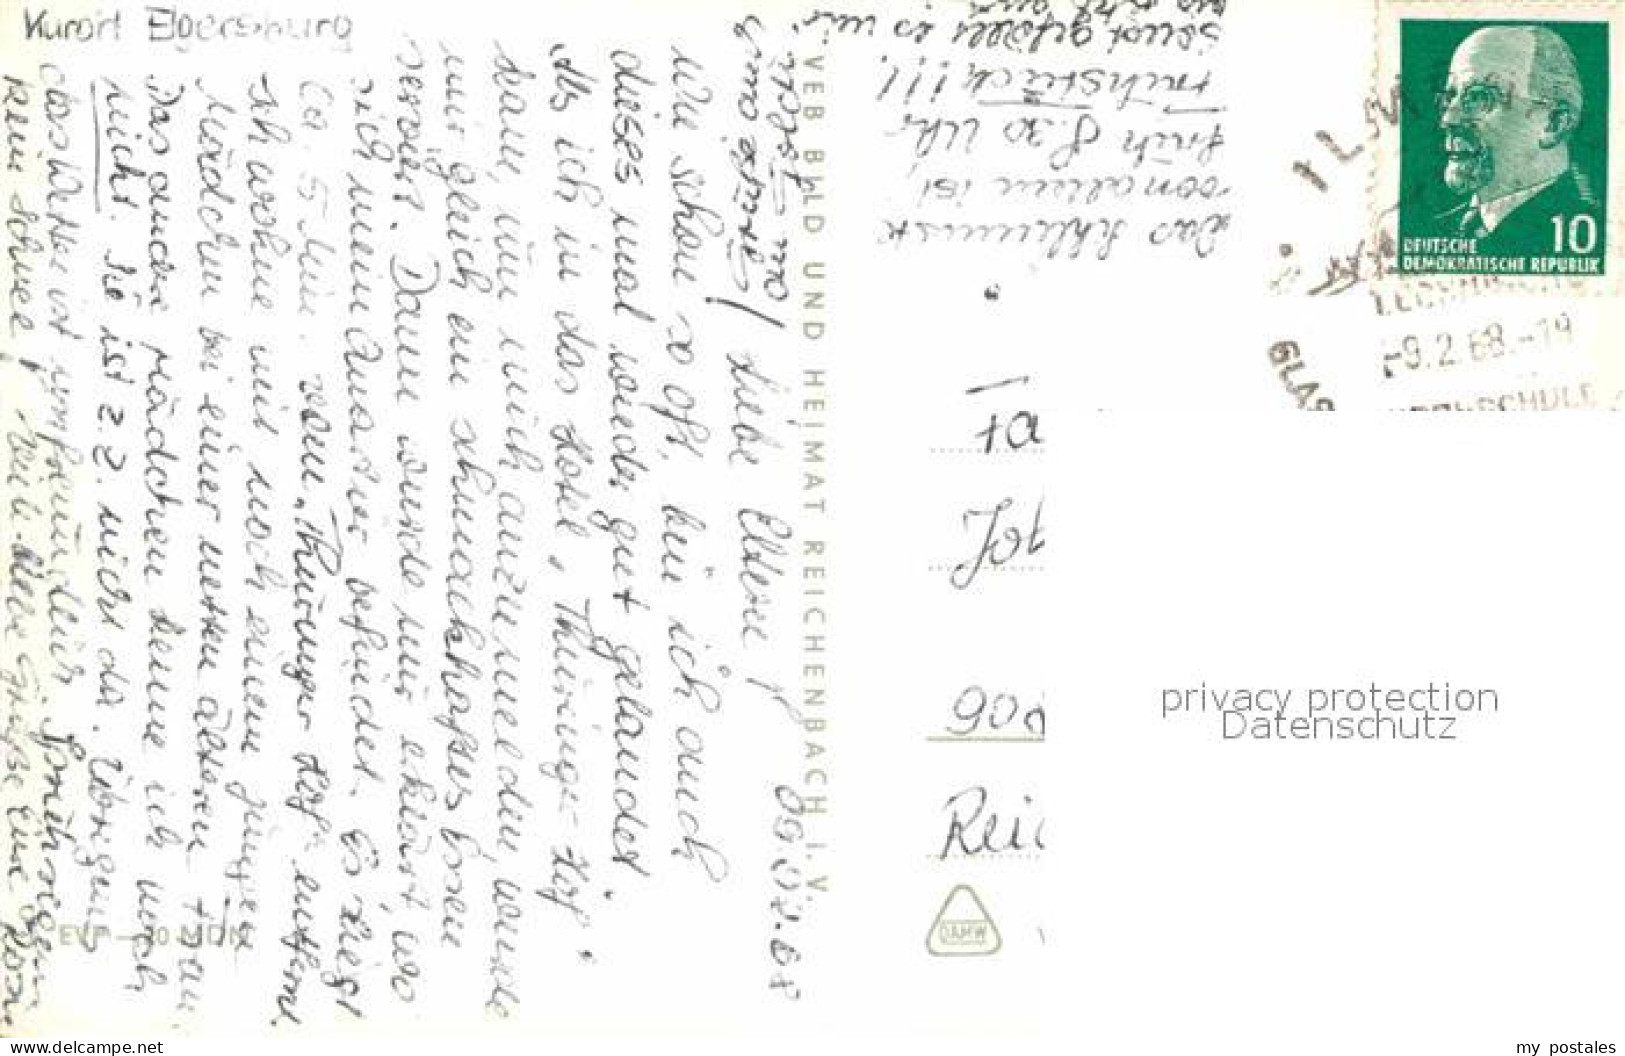 Kurort Elgersburg
09.02.68
Liebe Eltern!
Wie schon so oft, bin ich auch
dieses mal wieder gut gelandet.
Als ich in das Hotel „Thüringer Hof"
kam, um mich anzumelden, wurde
mir gleich ein schmackhaftes Essen
serviert. Dann wurde mir erklärt wo
sich mein Quartier befindet. Es liegt
ca. 5 Min. vom „Thüringer Hof" entfernt.
Ich wohne mit noch einem jungen
Mädchen bei einer netten älteren Frau.
Das andere Mädchen kenne ich noch
nicht. Sie ist z. Z. nicht da. Übrigens
das Wetter ist unfreundlich.
kein Schnee!
Viele liebe Grüße Eure
Das Schlimmste
von allem ist
früh 8.30 Uhr
Frühstück!!!
Sonst gefällt es mir
VEB BILD UND HEIMAT REICHENBACH I. V.
DEUTSCHE
DEMOKRATISCHE REPUBLIK
10
-9.2.68.-19
Fa
90
Rei
privacy protection
Datenschutz
www.delcampe.net
my_postales